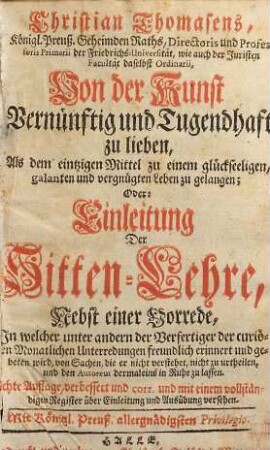 Christian Thomasens,
Königl. Preuß. Geheimden Raths, Directoris und Profes
soris Primarii der Friedrichs-Universität, wie auch der Juristen
Facultät daselbst Ordinarii,
Von der Kunst
Vernünftig und Tugendhaft
zu lieben,
Als dem eintzigen Mittel zu einem glückseeligen,
galanten und vergnügten Leben zu gelangen;
Oder:
Einleitung
Der
Sitten-Lehre,
Nebst einer Vorrede,
In welcher unter andern der Verfertiger der curiö-
en Monatlichen Unterredungen freundlich erinnert und ge-
beten wird, von Sachen, die er nicht verstehet, nicht zu urtheilen,
und den Autorem dermaleins in Ruhe zu lassen.
chte Auflage, verbessert und corr. und mit einem vollstän-
digen Register über Einleitung und Ausübung versehen.
Mit Königl. Preuß. allergnädigsten Privilegio.
HALLE,